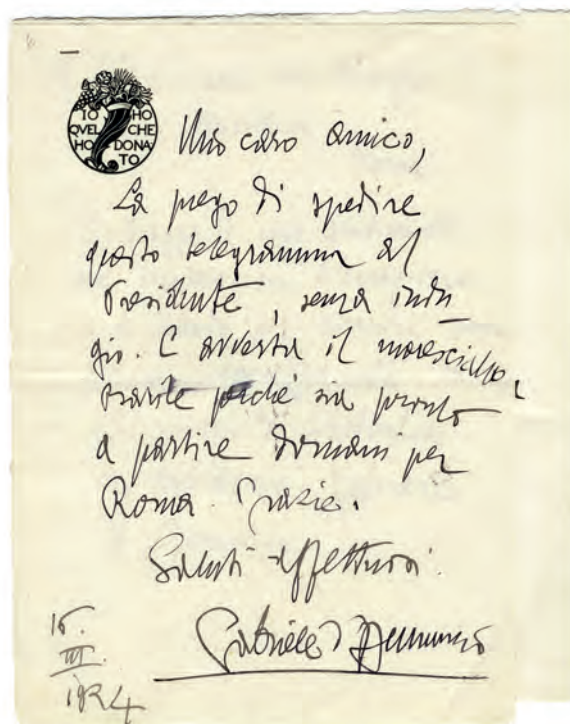 IO HO
QVEL CHE
HO DONA
TO
Mio caro amico,
La prego di spedire
questo telegramma al
Presidente, senza indu
gio. E avverta il maresciallo,
perché sia pronto
a partire domani per
Roma. Grazie.
Saluti affettuosi.
Gabriele d'Annunzio
III.
1924